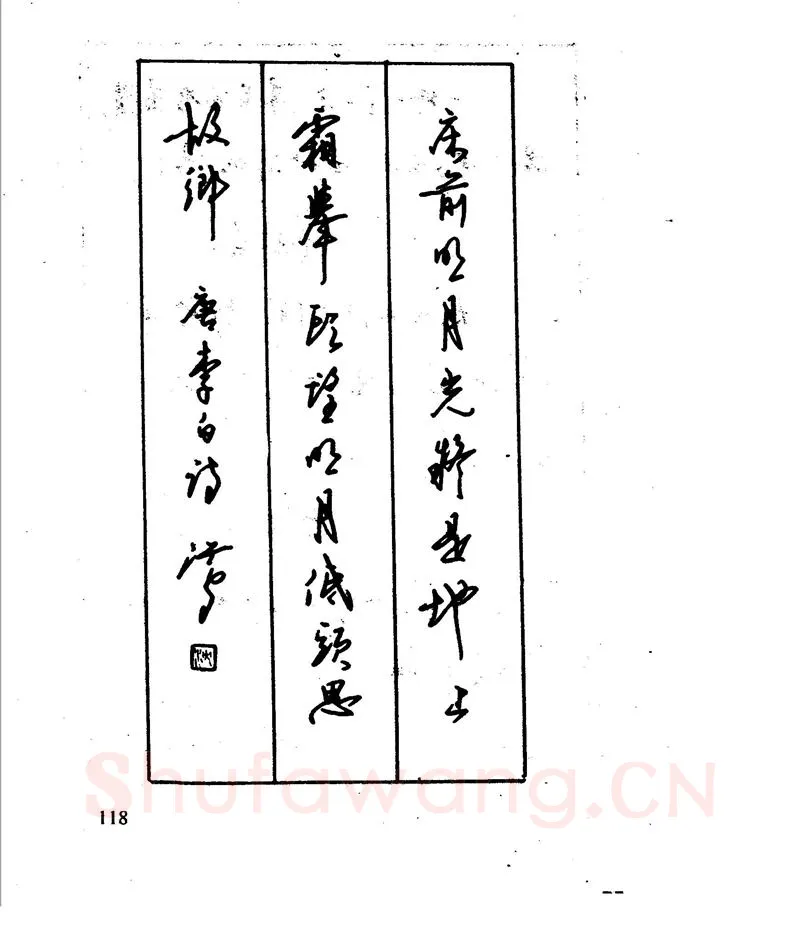 床前明月光疑是地上
霜举頭望明月低頭思
故鄉 唐李白诗
118
Shufawang.CN